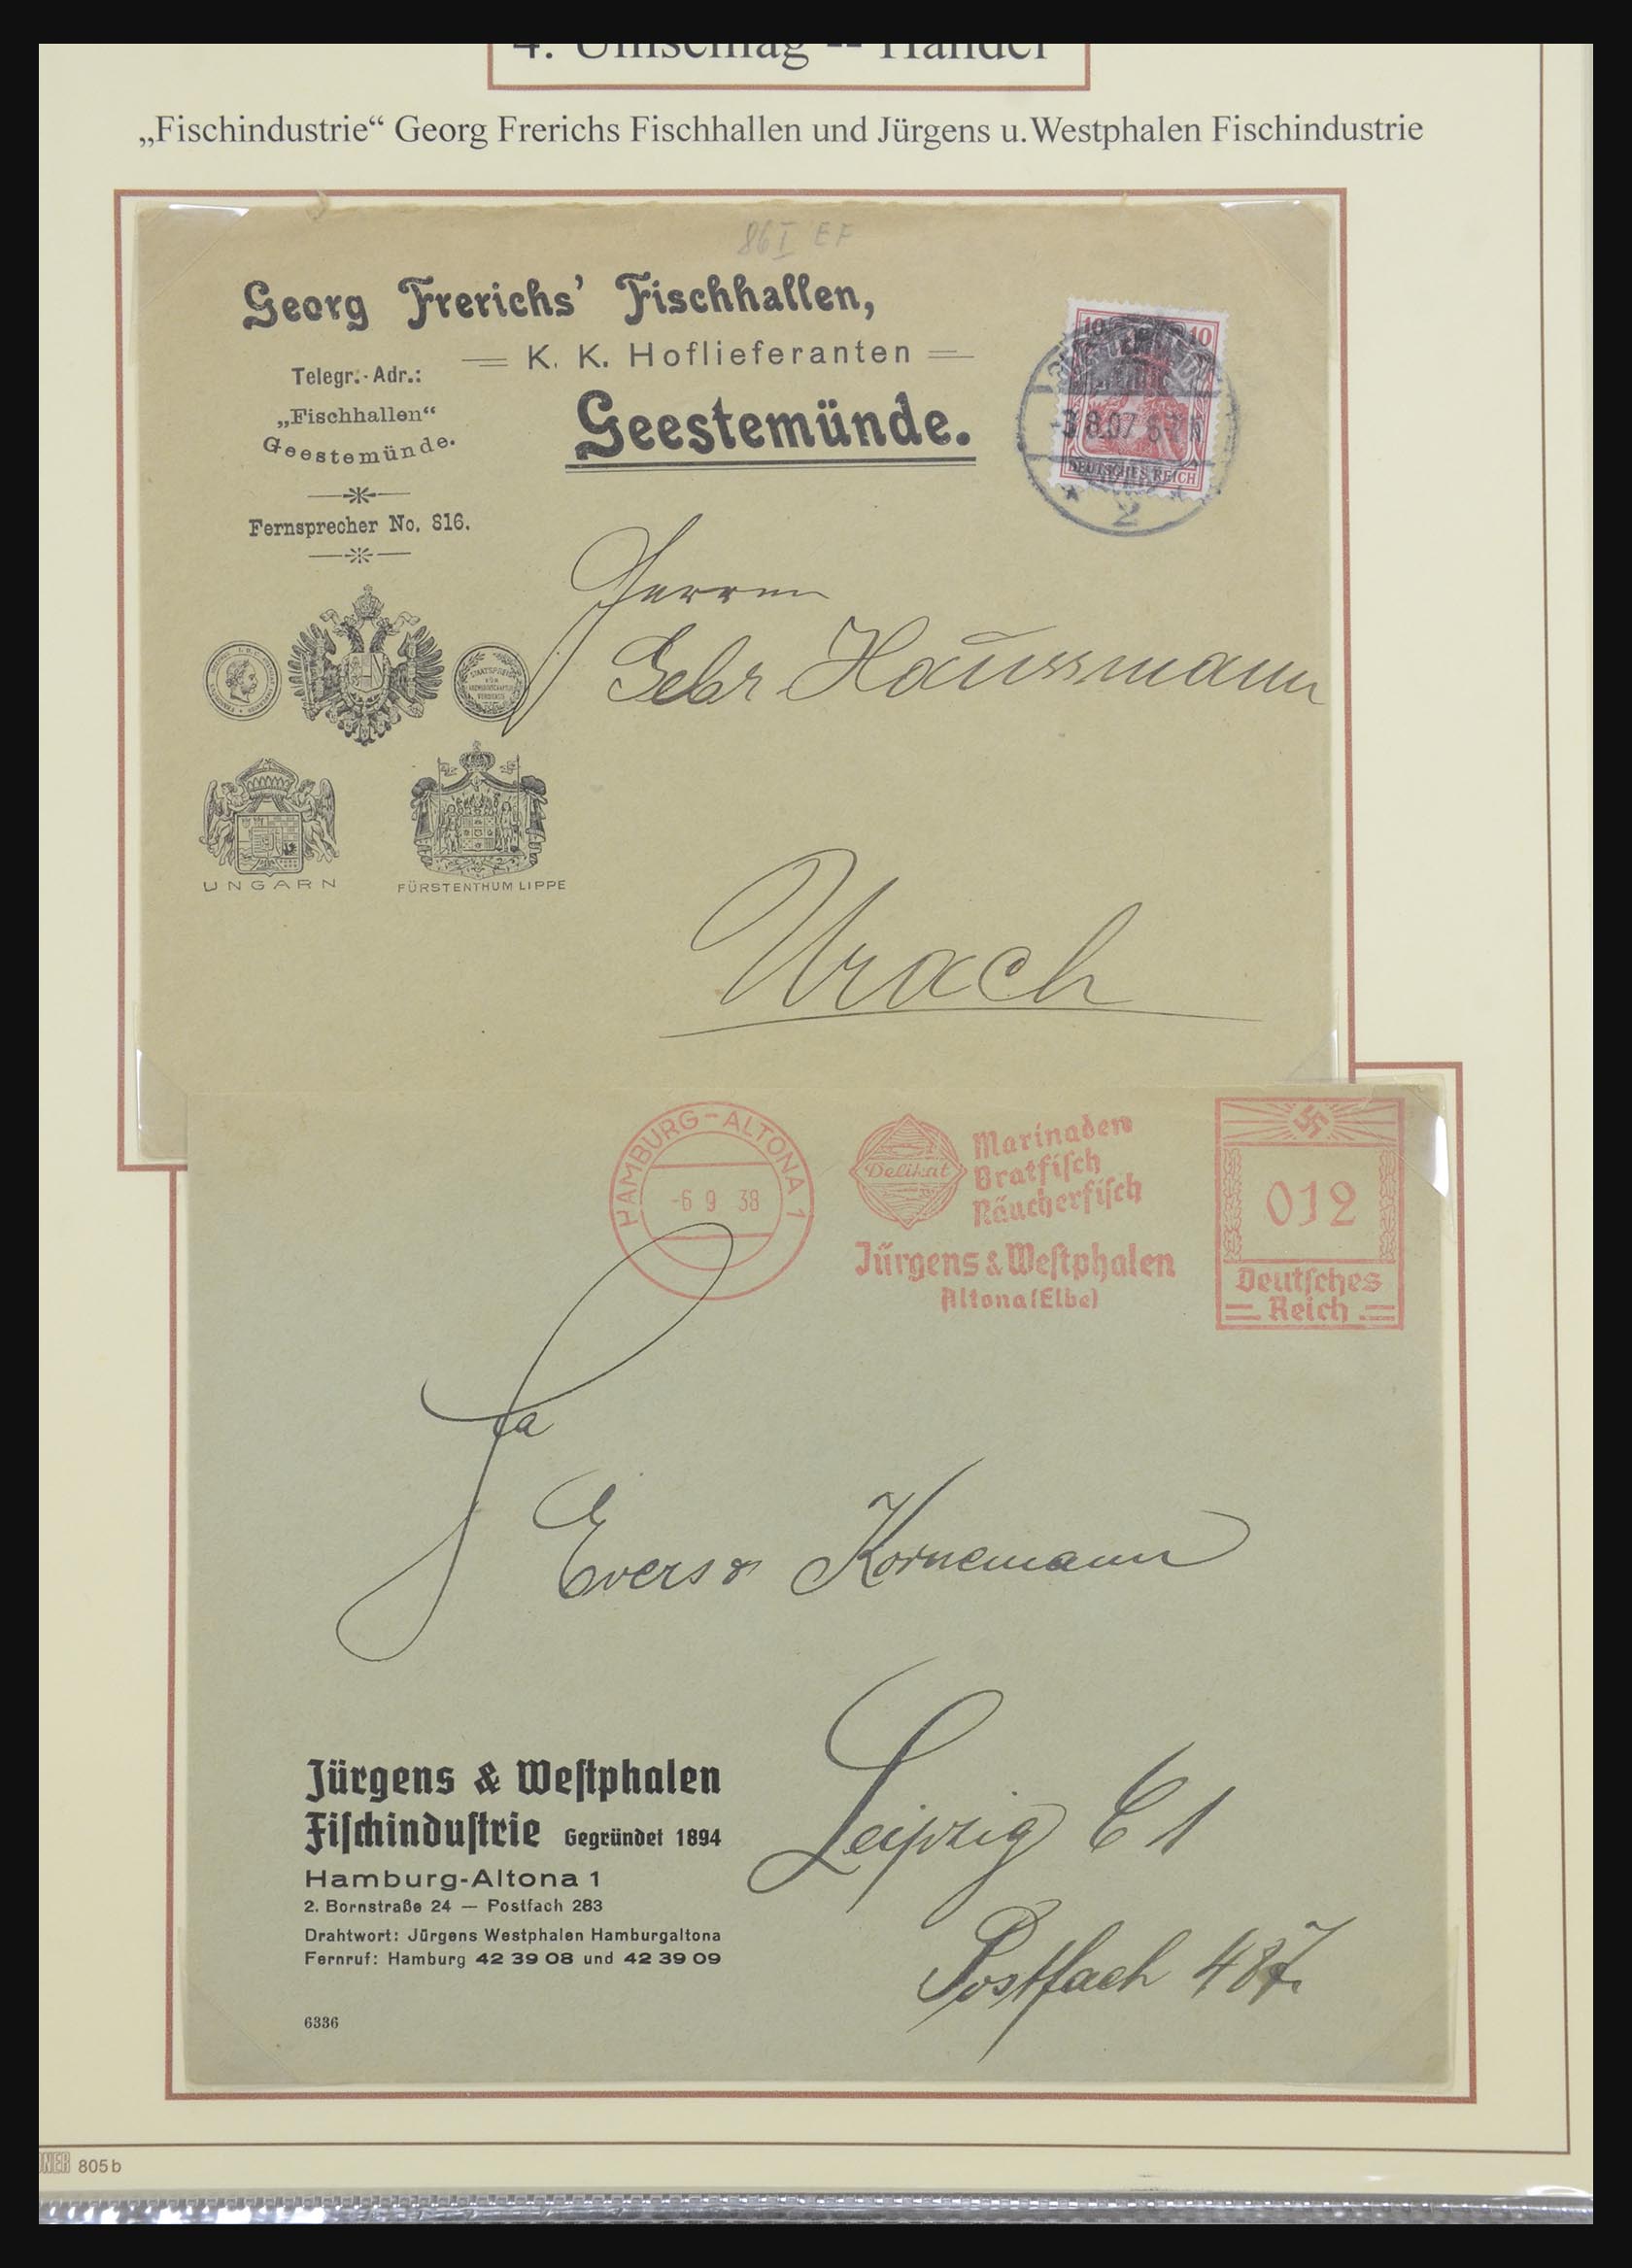 4. Umschlag -- Handel
„Fischindustrie“ Georg Frerichs Fischhallen und Jürgens u. Westphalen Fischindustrie
86 I EF
Georg Frerichs’ Fischhallen,
K. K. Hoflieferanten
Geestemünde.
Telegr.-Adr.:
„Fischhallen“
Geestemünde.
Fernsprecher No. 816.
10 10
-3.8.07
DEUTSCHES REICH
2
Herren
Gebr Haussmann
UNGARN
FÜRSTENTHUM LIPPE
Urach
HAMBURG-ALTONA 1
-6 9 38
Delikat
Marinaden
Bratfiſch
Räucherfiſch
Jürgens & Weſtphalen
Altona (Elbe)
012
Deutſches
Reich
Fa
Evers & Kornemann
Leipzig C 1
Postfach 487.
Jürgens & Weſtphalen
Fiſchinduſtrie Gegründet 1894
Hamburg-Altona 1
2. Bornstraße 24 — Postfach 283
Drahtwort: Jürgens Westphalen Hamburgaltona
Fernruf: Hamburg 42 39 08 und 42 39 09
6336
805 b